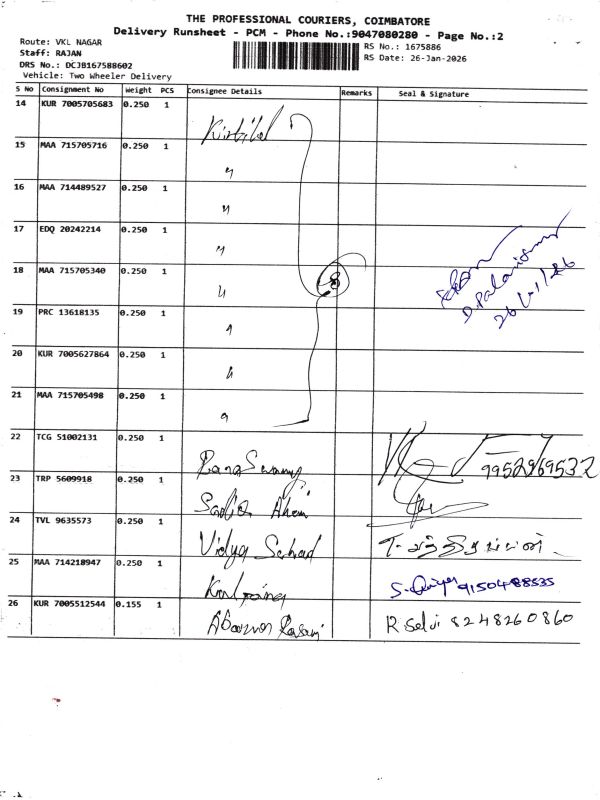 THE PROFESSIONAL COURIERS, COIMBATORE
Delivery Runsheet - PCM - Phone No.:9047080280 - Page No.:2
Route: VKL NAGAR
Staff: RAJAN
DRS No.: DCJB167588602
Vehicle: Two Wheeler Delivery
RS No.: 1675886
RS Date: 26-Jan-2026
S No Consignment No Weight PCS Consignee Details Remarks Seal & Signature
14 KUR 7005705683 0.250 1
15 MAA 715705716 0.250 1 "
16 MAA 714489527 0.250 1 "
17 EDQ 20242214 0.250 1 "
18 MAA 715705340 0.250 1 " 8
19 PRC 13618135 0.250 1 "
20 KUR 7005627864 0.250 1 "
21 MAA 715705498 0.250 1 "
D. Palanisamy
22 TCG 51002131 0.250 1 Rangaswamy 9952969532
23 TRP 5609918 0.250 1 Sadiq
24 TVL 9635573 0.250 1 Vidya
25 MAA 714218947 0.250 1 Kalpana S. 9150488535
26 KUR 7005512544 0.155 1 R. Selvi 8248260860